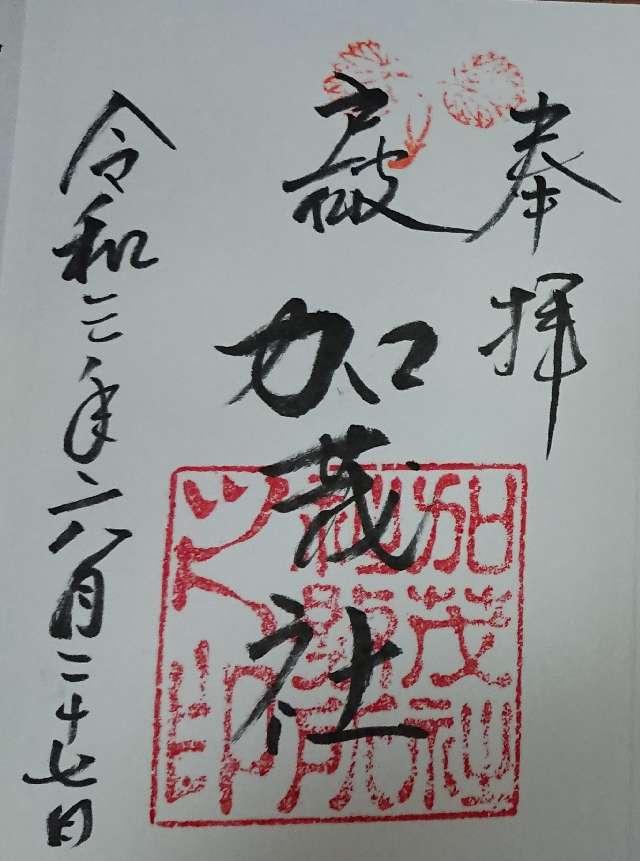 奉拝
戸破
加茂社
令和三年六月二十七日
加茂神
社務所
之印